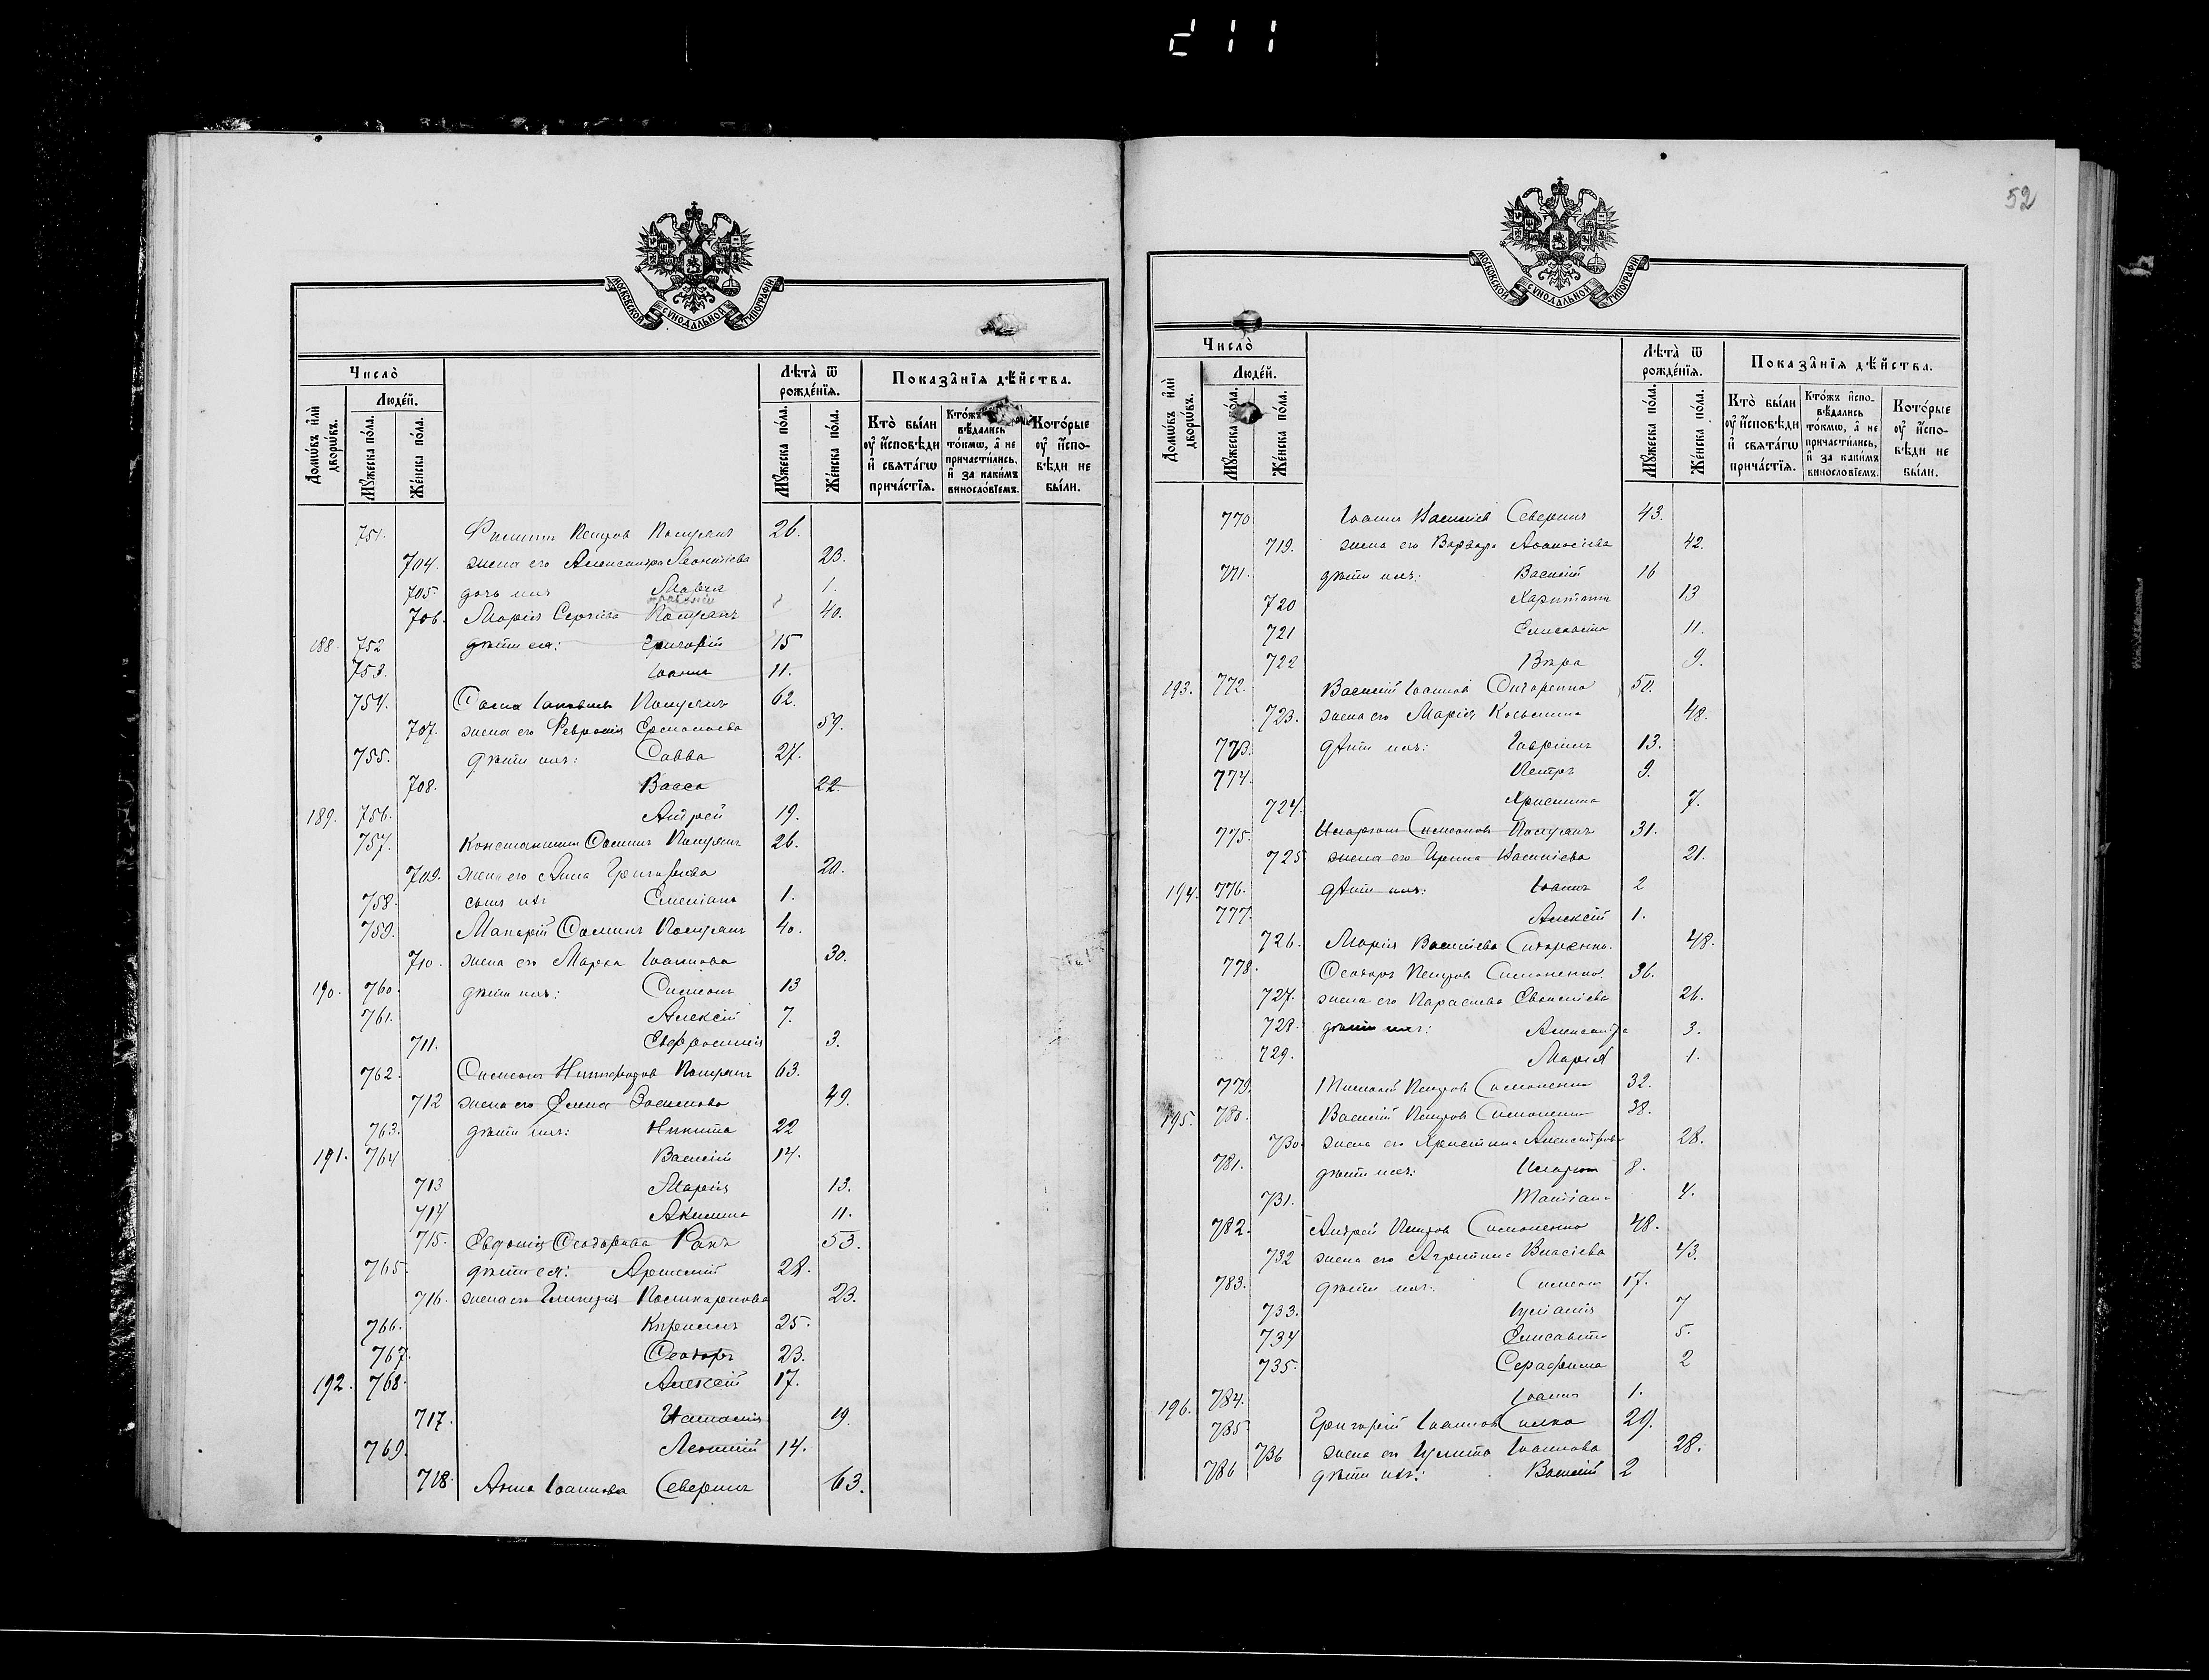 211
МОСКОВСКОЙ СѴНОДАЛЬНОЙ ТИПОГРАФІИ
Число̀
Домѡ́въ и҆лѝ дворѡ́въ.
Люде́й.
Мꙋ́жеска по́ла.
Же́нска по́ла.
Лѣ́та ѿ рожде́нїѧ.
Мꙋ́жеска по́ла.
Же́нска по́ла.
Показа̑нїѧ дѣ́йства.
Кто̀ бы́ли оу҆ и҆́сповѣди и҆ свѧта́гѡ прича́стїѧ.
Кто́жъ вѣ́дались то́кмѡ, а҆ не причасти́лись, и҆ за каки́мъ винослоⷡ́їемъ.
Кото́рые оу҆ и҆́спо- вѣди не бы́ли.
751. Филиппъ Петров 26.
704. жена его Александра Леонтіева 23.
705. дочь ихъ Марѳа 1.
706. Марія Сергіева 40.
188. 752 дѣти ея: Григорій 15
753. Іоаннъ 11.
754. 62.
707. жена его Февронія 59.
755. дѣти ихъ: Савва 27.
708. Васса 22.
189. 756. Андрей 19.
757. Константинъ 26.
709. жена его Анна Григорьева 20.
758. сынъ ихъ 1.
759. Макарій 40.
710. жена его Марѳа Іоаннова 30.
190. 760. дѣти ихъ: Симеонъ 13
761. Алексій 7.
711. Евфросинія 3.
762. Симеонъ Никифоров 63.
712 жена его Елена 49.
763. дѣти ихъ: Никита 22
191. 764 Василій 14.
713 Марія 13.
714 Акилина 11.
715. Евдокія Ѳеодорова Ракъ 53.
765. дѣти ея: Арсеній 28.
716. жена его Гликерія Поликарпова 23.
766. Кириллъ 25.
767. Ѳеодоръ 23.
192. 768. Алексій 17.
717. Наталія 19.
769. Леонтій 14.
718. Анна Іоаннова Северинъ 63.
52
МОСКОВСКОЙ СѴНОДАЛЬНОЙ ТИПОГРАФІИ
Число̀
Домѡ́въ и҆лѝ дворѡ́въ.
Люде́й.
Мꙋ́жеска по́ла.
Же́нска по́ла.
Лѣ́та ѿ рожде́нїѧ.
Мꙋ́жеска по́ла.
Же́нска по́ла.
Показа̑нїѧ дѣ́йства.
Кто̀ бы́ли оу҆ и҆́сповѣди и҆ свѧта́гѡ прича́стїѧ.
Кто́жъ и҆спо- вѣ́дались то́кмѡ, а҆ не причасти́лись, и҆ за каки́мъ винослоⷡ́їемъ.
Кото́рые оу҆ и҆́спо- вѣди не бы́ли.
770 Іоаннъ Василіев Северинъ 43.
719. жена его Варвара 42.
771. дѣти ихъ: Василій 16
720 Харитина 13
721 Елисавета 11.
722 Вѣра 9.
193. 772. Василій Іоаннов 50.
723. жена его Марія Косьмина 48.
773. дѣти ихъ: Гавріилъ 13.
774. Петръ 9.
724. Христина 7.
775. Иларіонъ Симеонов 31.
725 жена его Ирина Василіева 21.
194. 776. дѣти ихъ: Іоаннъ 2
777. Алексій 1.
726. Марія Василіева Сидоренко. 48.
778. Ѳеодоръ Петров Симоненко. 36.
727. жена его Параскева 26.
728. дѣти ихъ: Александра 3.
729. Марія 1.
779. Тимоѳей Петров Симоненко 32.
195. 780. Василій Петров Симоненко 38.
730. жена его Христина 28.
781. дѣти ихъ: Иларіонъ 8.
731. Татіана 4.
782. Андрей Петров Симоненко 48.
732 жена его Агрипина Власіева 43.
783. дѣти ихъ: Симеонъ 17.
733. Іуліанія 7
734 Елисавета 5.
735. Серафима 2
196. 784. Іоаннъ 1.
785 Григорій Іоаннов 29.
736 жена его Іулита Іоаннова 28.
786 дѣти ихъ: Василій 2